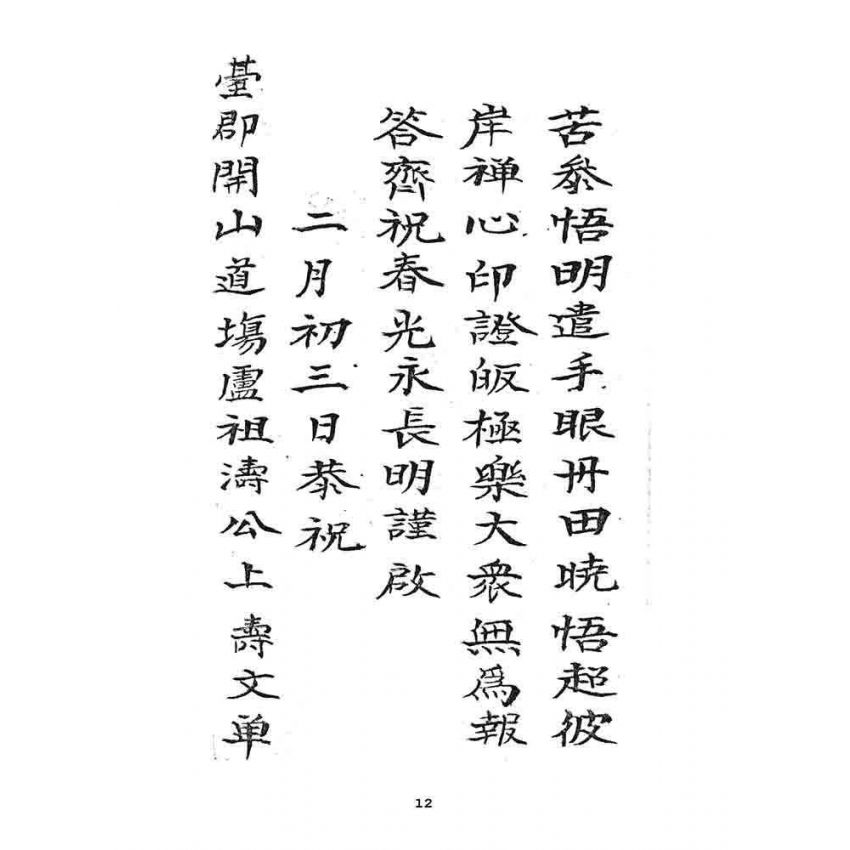 苦叅悟明遣手眼丹田曉悟超彼
岸禅心印證皈極樂大衆無爲報
答齊祝春光永長明謹啟
二月初三日恭祝
臺郡開山道塲盧祖濤公上壽文单
12